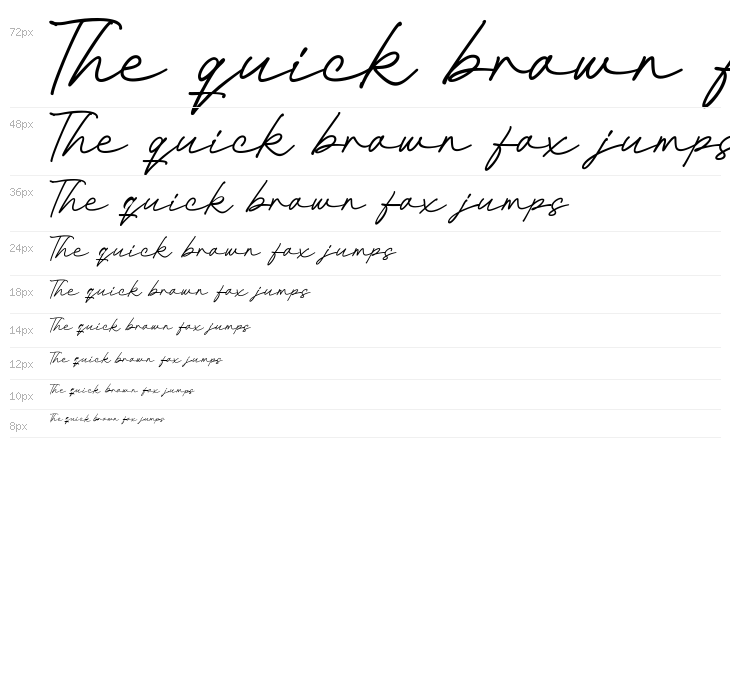 72px The quick brown f
48px The quick brown fox jumps
36px The quick brown fox jumps
24px The quick brown fox jumps
18px The quick brown fox jumps
14px The quick brown fox jumps
12px The quick brown fox jumps
10px The quick brown fox jumps
8px The quick brown fox jumps